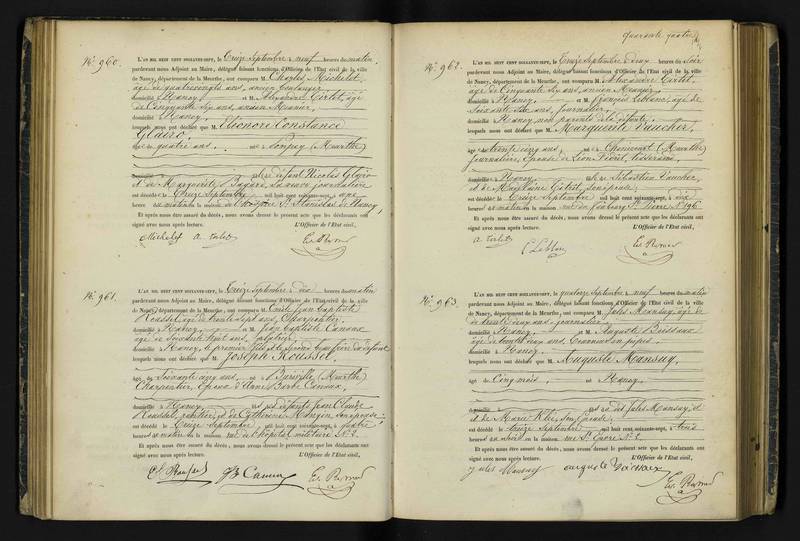 quarante quatre
N° 960.
L'AN MIL HUIT CENT SOIXANTE-SEPT, le Treize Septembre à neuf heures du matin
pardevant nous Adjoint au Maire, délégué faisant fonctions d'Officier de l'Etat civil de la ville
de Nancy, département de la Meurthe, ont comparu M. Charles Michelet,
âgé de quatre vingts ans, ancien boulanger
domicilié à Nancy et M. Alexandre Tortet, âgé
de Cinquante six ans, ancien Menuisier,
domicilié à Nancy.
lesquels nous ont déclaré que M. Eléonore Constance
Glairo,
âgée de quatre ans, née à Pompey (Meurthe)
fille de défunt Nicolas Glairo
et de Marguerite sa veuve journalière
est décédée le Treize Septembre mil huit cent soixante-sept, à une
heure du matin en la maison de l'hospice St Stanislas de Nancy,
Et après nous être assuré du décès, nous avons dressé le présent acte que les déclarants ont
signé avec nous après lecture. L'Officier de l'Etat civil,
Michelet A. Tortet
N° 961.
L'AN MIL HUIT CENT SOIXANTE-SEPT, le Treize Septembre à dix heures du matin
pardevant nous Adjoint au Maire, délégué faisant fonctions d'Officier de l'Etat civil de la ville
de Nancy, département de la Meurthe, ont comparu M. Emile Jean Baptiste
Roussel, âgé de trente sept ans, Charpentier,
domicilié à Nancy, et M. Jean Baptiste Canaux
âgé de Soixante huit ans,
domicilié à Nancy, le premier fils et le second beau frère du défunt
lesquels nous ont déclaré que M. Joseph Roussel,
âgé de Soixante cinq ans, né à (Meurthe)
Charpentier, Epoux d'Anne Barbe Canaux,
domicilié à Nancy, fils des défunts Jean Claude
Roussel, rentier, et de Catherine Mangin son épouse
est décédé le Treize Septembre mil huit cent soixante-sept, à quatre
heures du matin en la maison rue de l'hôpital militaire N° 2.
Et après nous être assuré du décès, nous avons dressé le présent acte que les déclarants ont
signé avec nous après lecture. L'Officier de l'Etat civil,
N° 962.
L'AN MIL HUIT CENT SOIXANTE-SEPT, le Treize Septembre à deux heures du soir
pardevant nous Adjoint au Maire, délégué faisant fonctions d'Officier de l'Etat civil de la ville
de Nancy, département de la Meurthe, ont comparu M. Alexandre Tortet,
âgé de Cinquante six ans, ancien Menuisier
domicilié à Nancy, et M. François Leblanc, âgé de
Soixante ans, journalier,
domicilié à Nancy, non parents de la défunte,
lesquels nous ont déclaré que M. Marguerite Vaucher,
âgée de trente cinq ans, née à Chenicourt (Meurthe)
journalière, Epouse de Léon tisserand,
domiciliée à Nancy, fille de Sébastien Vaucher,
et de Magdelaine son épouse,
est décédée le Treize Septembre mil huit cent soixante-sept, à dix
heures du matin en la maison rue du faubourg St Pierre N° 196
Et après nous être assuré du décès, nous avons dressé le présent acte que les déclarants ont
signé avec nous après lecture. L'Officier de l'Etat civil,
A. Tortet
N° 963.
L'AN MIL HUIT CENT SOIXANTE-SEPT, le quatorze Septembre à neuf heures du matin
pardevant nous Adjoint au Maire, délégué faisant fonctions d'Officier de l'Etat civil de la ville
de Nancy, département de la Meurthe, ont comparu M. Jules Mansuy, âgé
de trente deux ans, journalier,
domicilié à Nancy, et M. Auguste
âgé de trente deux ans, Tourneur en pipes,
domicilié à Nancy.
lesquels nous ont déclaré que M. Auguste Mansuy,
âgé de Cinq mois, né à Nancy,
fils de Jules Mansuy, et
de Marie son épouse,
est décédé le treize Septembre mil huit cent soixante-sept, à trois
heures du soir en la maison rue St Epvre N° 2.
Et après nous être assuré du décès, nous avons dressé le présent acte que les déclarants ont
signé avec nous après lecture. L'Officier de l'Etat civil,
Jules Mansuy auguste